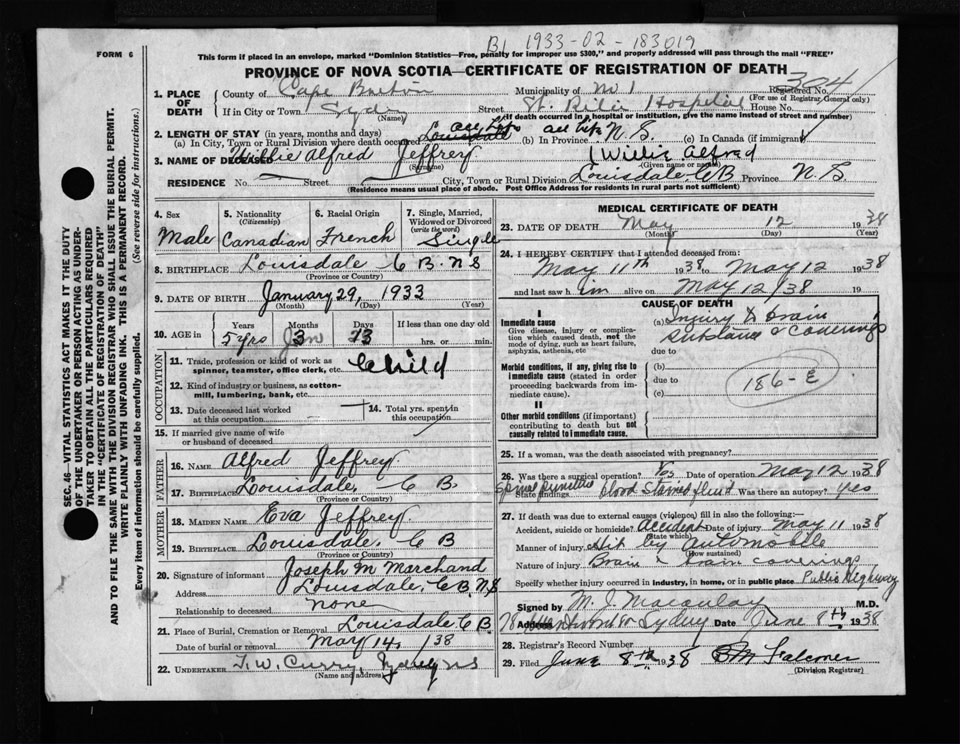 B1 1933-02-183019
FORM 6
This form if placed in an envelope, marked "Dominion Statistics—Free, penalty for improper use $300," and properly addressed will pass through the mail "FREE"
PROVINCE OF NOVA SCOTIA—CERTIFICATE OF REGISTRATION OF DEATH
304
Registered No.
(For use of Registrar General only)
1. PLACE OF DEATH
County of Cape Breton Municipality of No 1
If in City or Town Sydney Street St. Rita Hospital House No.
(Name) (If death occurred in hospital or institution, give the name instead of street and number)
2. LENGTH OF STAY (in years, months and days)
(a) In City, Town or Rural Division where death occurred Louisdale all life (b) In Province all life N.S. (c) In Canada (if immigrant)
3. NAME OF DECEASED Willie Alfred Jeffrey Willie Alfred
(Surname) (Given name or names)
RESIDENCE No. Street City, Town or Rural Division Louisdale, C B Province N. S.
(Residence means usual place of abode. Post Office Address for residents in rural parts not sufficient)
4. Sex
Male
5. Nationality
(Citizenship)
Canadian
6. Racial Origin
French
7. Single, Married, Widowed or Divorced
(write the word)
Single
8. BIRTHPLACE Louisdale C B. N S
(Province or Country)
9. DATE OF BIRTH January 29, 1933
(Month) (Day) (Year)
10. AGE in Years Months Days If less than one day old
5 yrs 3m 13 hrs. or min.
OCCUPATION
11. Trade, profession or kind of work as spinner, teamster, office clerk, etc. Child
12. Kind of industry or business, as cotton-mill, lumbering, bank, etc.
13. Date deceased last worked at this occupation
14. Total yrs. spent in this occupation
15. If married give name of wife or husband of deceased
FATHER
16. NAME Alfred Jeffrey
17. BIRTHPLACE Louisdale, C B
(Province or Country)
MOTHER
18. MAIDEN NAME Eva Jeffrey.
19. BIRTHPLACE Louisdale, C B
(Province or Country)
20. Signature of informant Joseph M Marchand
Address Louisdale, C.B. N.S
Relationship to deceased none
21. Place of Burial, Cremation or Removal Louisdale C B.
Date of burial or removal May 14, /38
22. UNDERTAKER T. W. Curry, Sydney N S
(Name and address)
MEDICAL CERTIFICATE OF DEATH
23. DATE OF DEATH May 12 1938
(Month) (Day) (Year)
24. I HEREBY CERTIFY that I attended deceased from
May 11th 1938 to May 12 1938
and last saw him alive on May 12/38 19
CAUSE OF DEATH
I
Immediate cause
Give disease, injury or complication which caused death, not the mode of dying, such as heart failure, asphyxia, asthenia, etc
(a) Injury to brain
substance & coverings
due to
Morbid conditions, if any, giving rise to immediate cause (stated in order proceeding backwards from immediate cause).
(b)
due to
(c)
186-E
II
Other morbid conditions (if important) contributing to death but not causally related to immediate cause.
25. If a woman, was the death associated with pregnancy?
26. Was there a surgical operation? Yes Date of operation May 12 1938
Spinal puncture
State findings blood stained fluid Was there an autopsy? Yes
27. If death was due to external causes (violence) fill in also the following:—
Accident, suicide or homicide? Accident Date of injury May 11 1938
(State which)
Manner of injury Hit by Automobile
(How sustained)
Nature of injury Brain & brain coverings
Specify whether injury occurred in industry, in home, or in public place Public Highway
Signed by M. J. Macaulay M.D.
Address 78 Sydney Date June 8th 1938
28. Registrar's Record Number
29. Filed June 8th 1938 Falconer
(Division Registrar)
SEC. 46—VITAL STATISTICS ACT MAKES IT THE DUTY OF THE UNDERTAKER OR PERSON ACTING AS UNDERTAKER TO OBTAIN ALL THE PARTICULARS REQUIRED IN THE "CERTIFICATE OF REGISTRATION OF DEATH" AND TO FILE THE SAME WITH THE DIVISION REGISTRAR WHO SHALL ISSUE THE BURIAL PERMIT.
WRITE PLAINLY WITH UNFADING INK. THIS IS A PERMANENT RECORD.
Every item of information should be carefully supplied. (See reverse side for instructions).